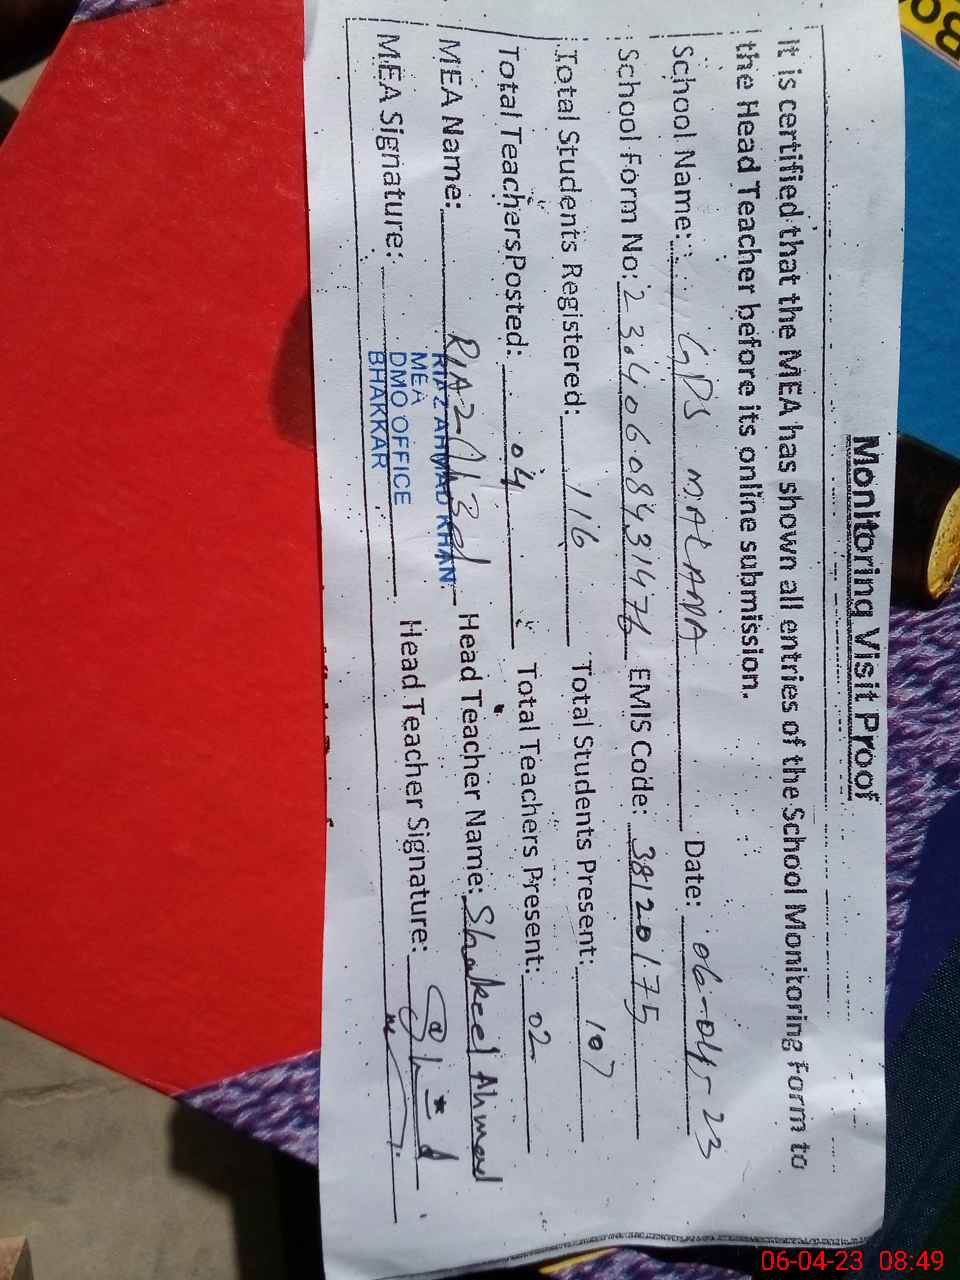 Monitoring Visit Proof
It is certified that the MEA has shown all entries of the School Monitoring Form to
the Head Teacher before its online submission.
School Name: GPS MALANA Date: 06-04-23
School Form No: 23040608431476 EMIS Code: 38120175
Total Students Registered: 116 Total Students Present: 107
Total Teachers Posted: 04 Total Teachers Present: 02
MEA Name: Riaz Ahmad Head Teacher Name: Shakeel Ahmad
MEA Signature: Head Teacher Signature:
RIAZ AHMAD KHAN
MEA
DMO OFFICE
BHAKKAR
06-04-23 08:49